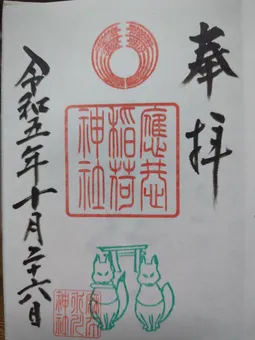 奉拝
稲荷
神社
令和五年十月二十六日
神社